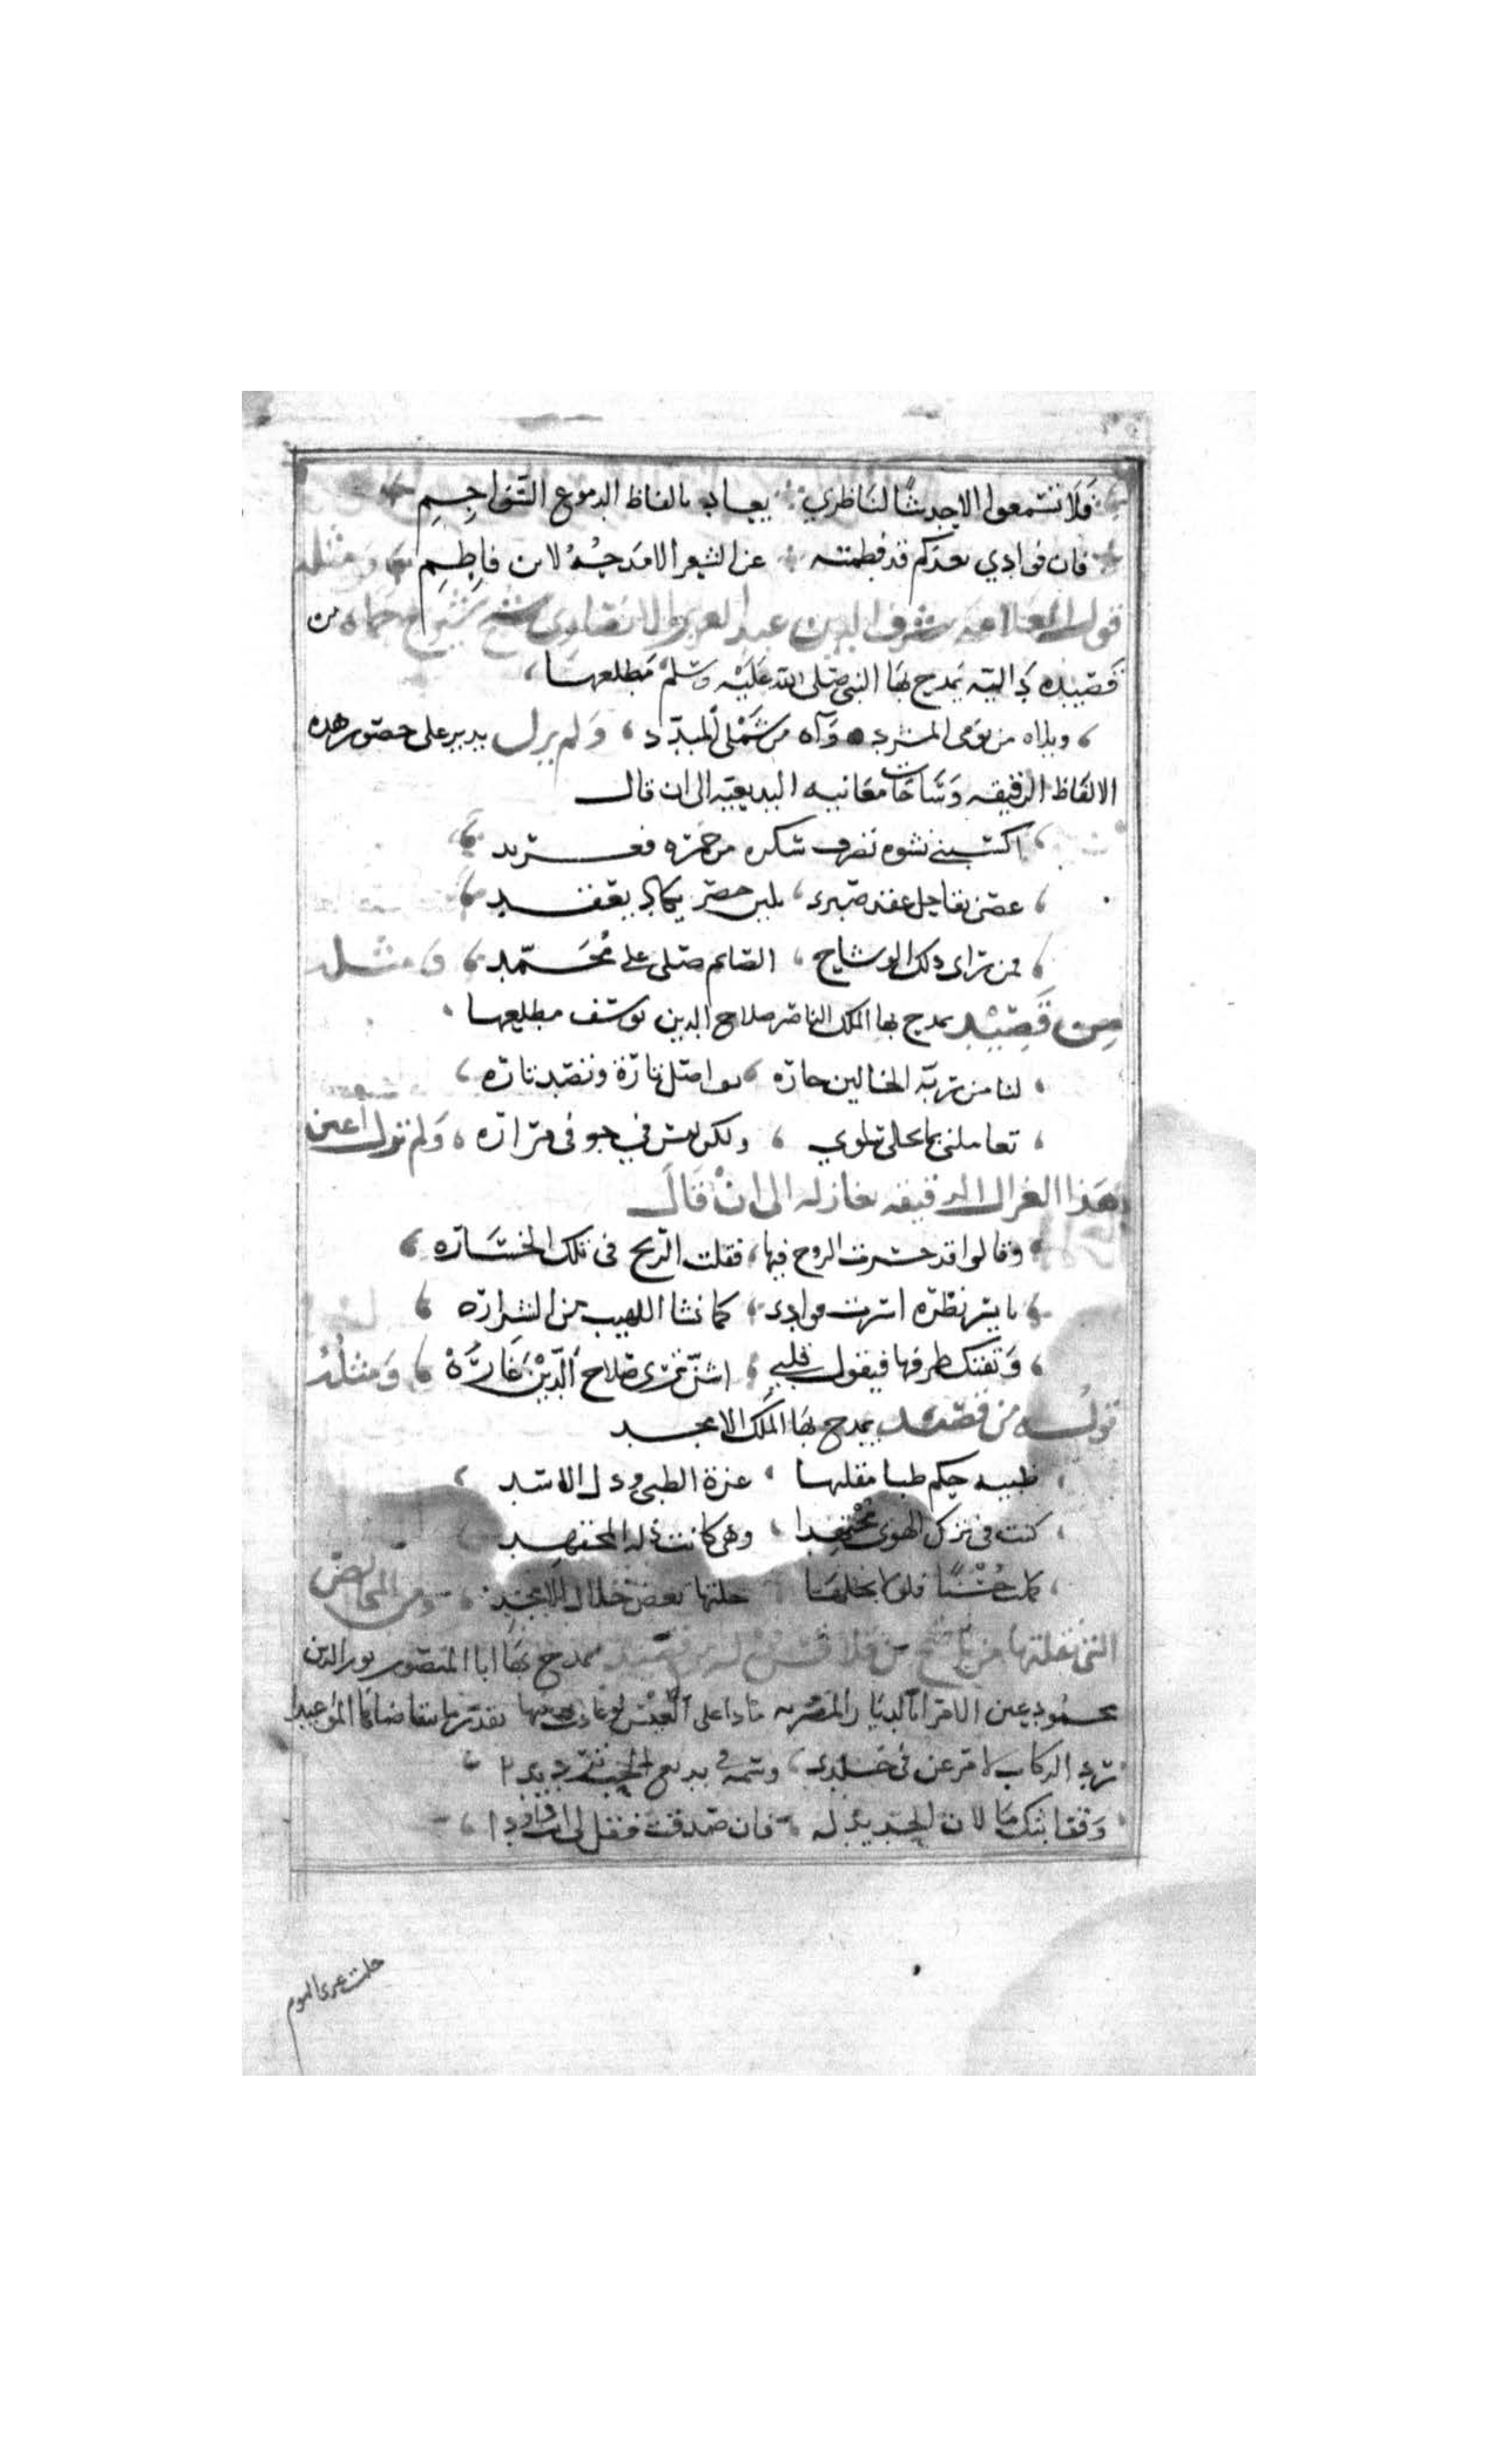 فلا تسمعوا الا حديثا لناظري يعاد بالفاظ الدموع السواجم
فان فوادي بعدكم قد فطمته عن الشعر الا مدحة لابن فاطم ومثله
قول العلامه شرف الدين عبد العزيز الانصاري شيخ شيوخ حماه من
قصيده داليه يمدح بها النبي صلى الله عليه وسلم مطلعها
ويلاه من نومى المشرد وآه من شملي المبدد ولم يزل يدير على حصور هذه
الالفاظ الرقيقه وشاحات معانيه البديعيه الى ان قال
اكسبني نشوه بطرف سكره من خمره فعربد
غصن نقا حل عقد صبرى بلين خصر يكاد يعقد
فمن راى ذلك الوشاح الصايم صلى على محمد ومثله
من قصيد يمدح بها الملك الناصر صلاح الدين يوسف مطلعها
لنا من ربة الخالين جاره تواصل تارة وتصد تاره
تعاملني بما يحلى سلوي ولكن ليس في جوفى مراره ولم تزل اعين
هذا الغزل الرقيقه تغازله الى ان قال
وقالوا قد خسرت الروح فيها فقلت الربح فى تلك الخساره
بايسر نظره اسرت فوادى كما نشا اللهيب من الشراره
وتفتك طرفها فيقول قلبي اشن ترى صلاح الدين غاره ومثله
قوله من قصيد يمدح بها الملك الامجد
ظبيه حكم ظبا مقلتها عزة الظبى وذل الاسد
كنت فى تركى الهوى مجتهدا وهى كانت زلة المجتهد
كملت حسنا فلولا بخلها خلتها بعض خلال الامجد ومن المخالص
التى نقلتها من قوله من قصيد يمدح بها ابا المنصور نور الدين
محمود عين الامرا بالديار المصريه ماذا على العيس لو عادت بقدر ما تتقاضانا المواعيدا
ترد الركاب لامر عن فى خلدى وسمه في بديع الحب ترديدا
وقفا بثك ما لان الحديد له فان صدقت فقل لى داودا
حلت عرى النوم